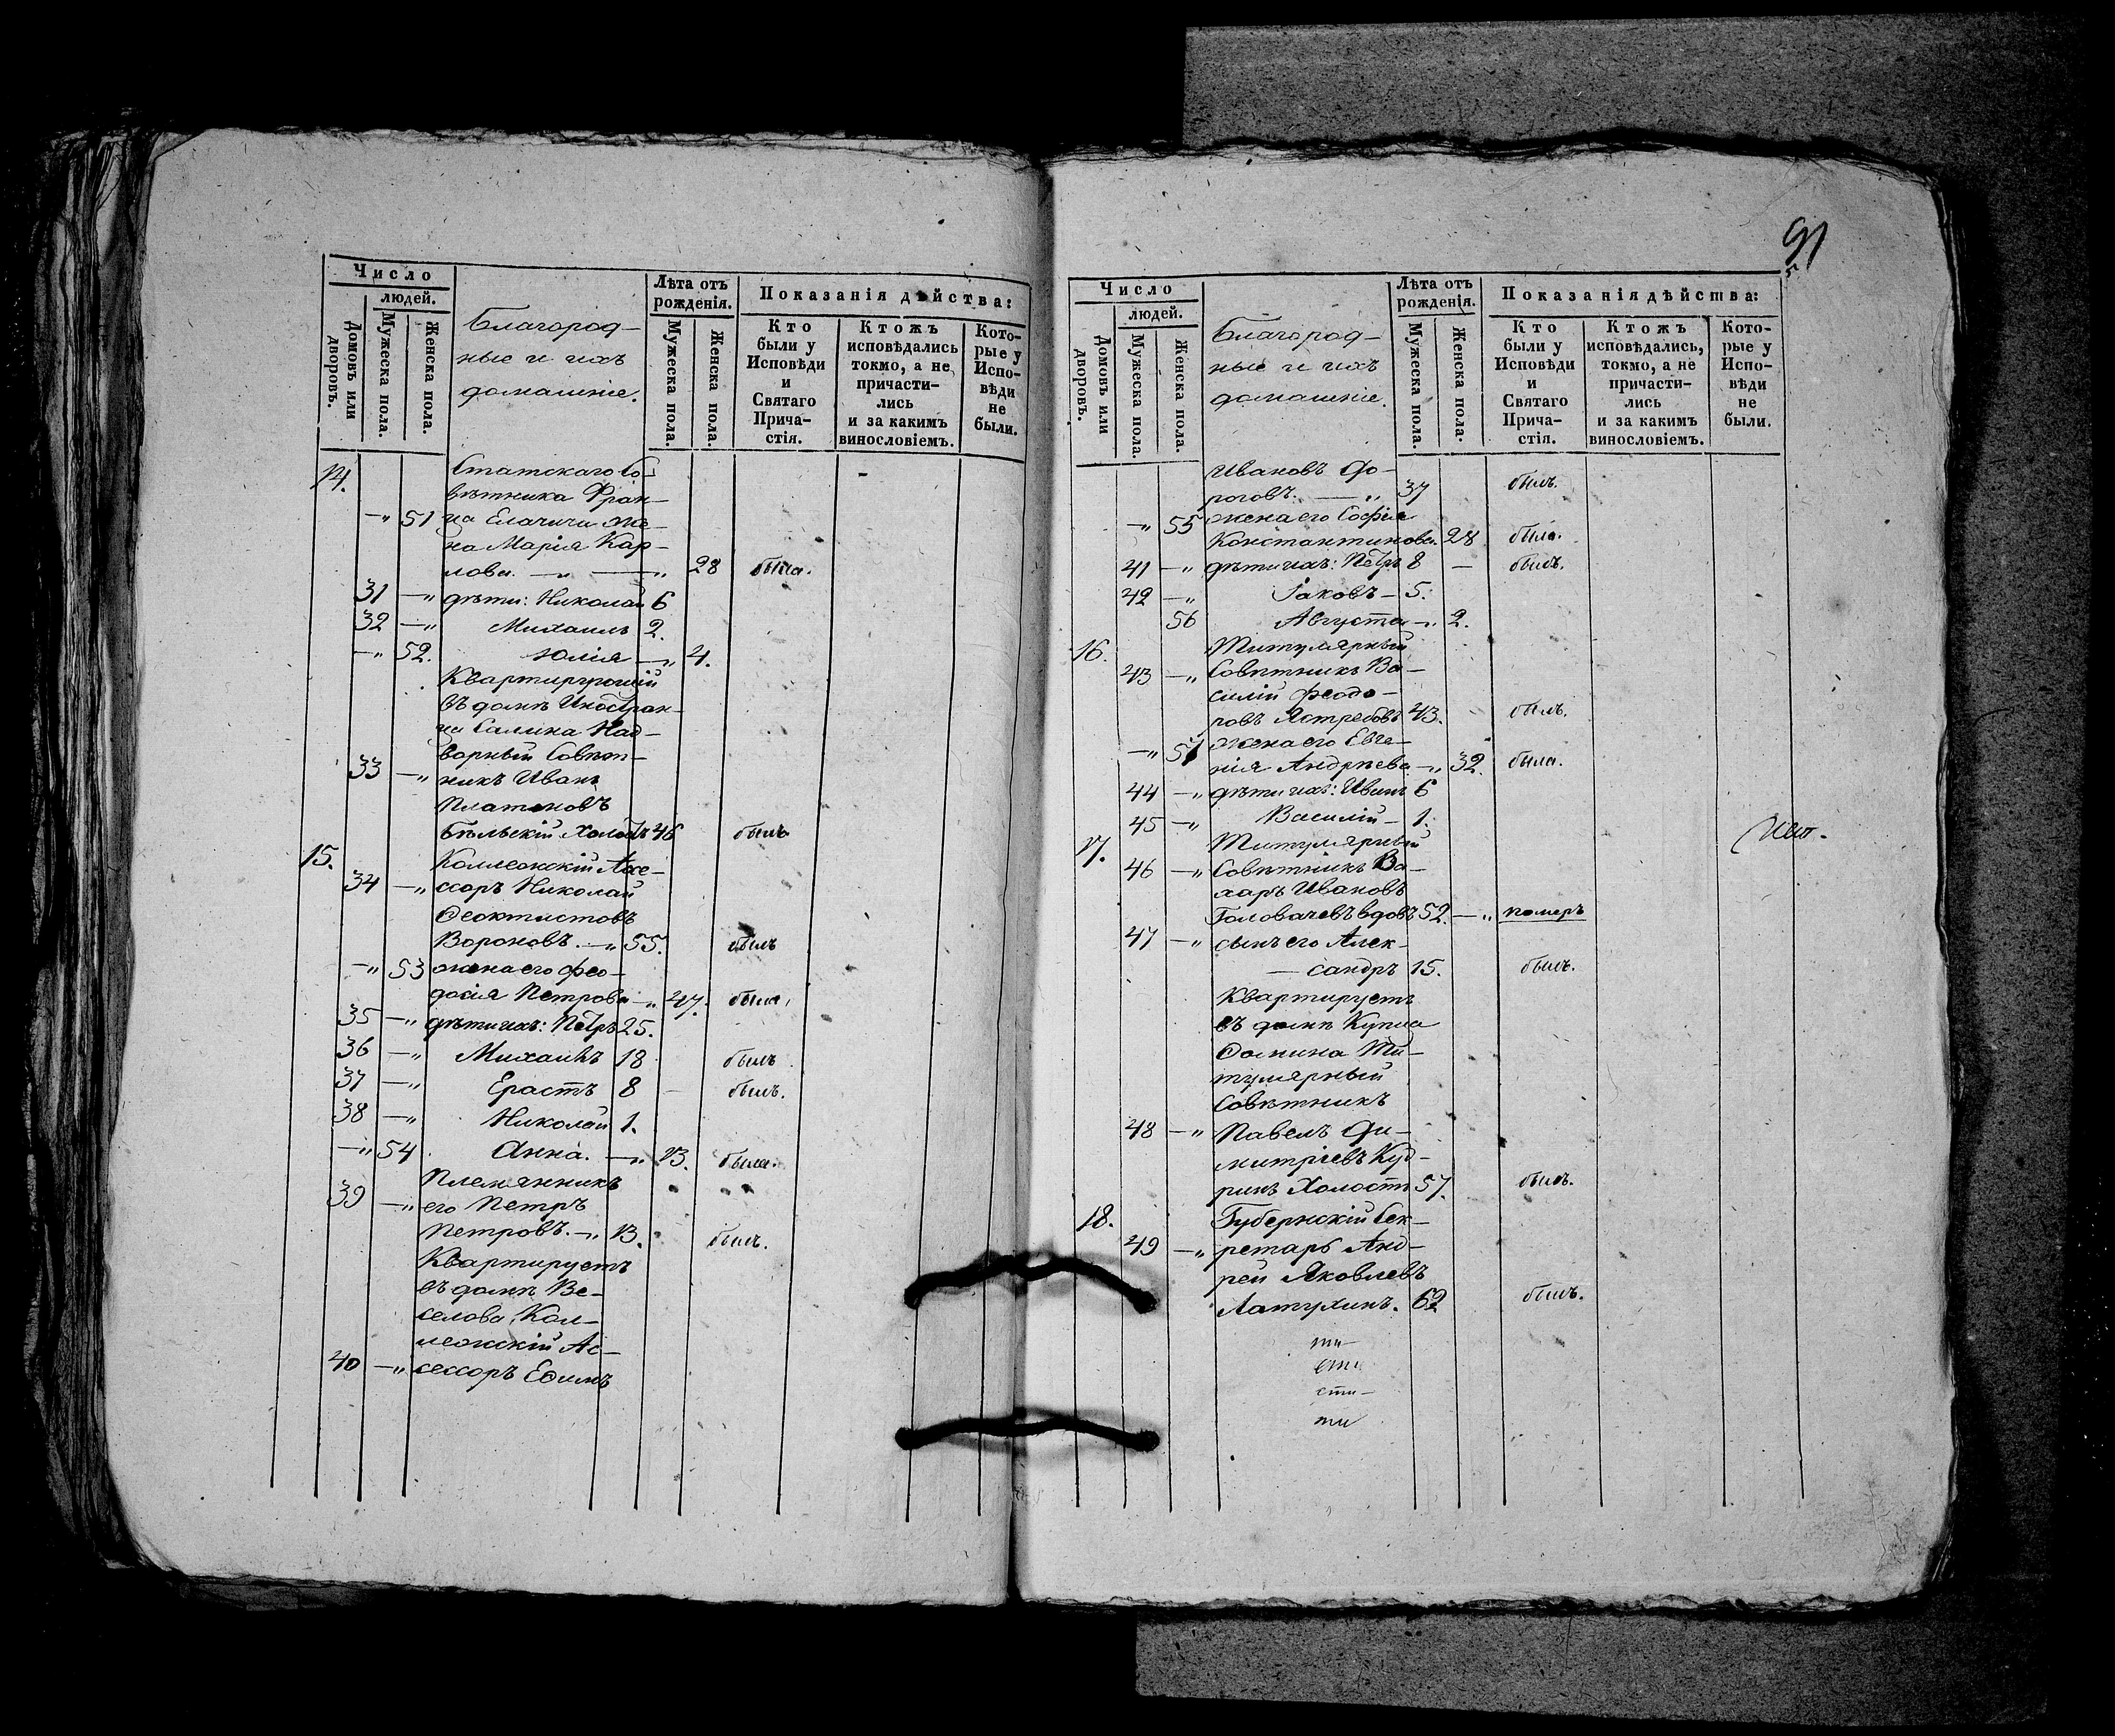 91
Число
людей.
Домовъ или дворовъ.
Мужеска пола.
Женска пола.
Благород-
ные и ихъ
домашніе.
Лѣта отъ рожденія.
Мужеска пола.
Женска пола.
Показанія дѣйства:
Кто были у Исповѣди и Святаго Прича-стія.
Ктожъ исповѣдались токмо, а не причасти-лись и за какимъ винословіемъ.
Кото-рые у Испо-вѣди не были.
14. Статскаго Со-
вѣтника Фран-
—„ 51 ца Елачича же-
на Марія Кар-
лова. —„— —„ 28 была.
31 —„ дѣти: Николай 6
32 —„ Михаилъ 2.
—„ 52. Юлія —„ 4.
Квартирующій
въ домѣ Иностран-
ца Салина Над-
ворный Совѣт-
33 —„ никъ Иванъ
Платоновъ
Бѣльскій Холостъ 46 былъ
15. Коллежскій Ассе-
34 —„ ссоръ Николай
Феоктистовъ
Вороновъ. —„ 55. былъ
—„ 53 жена его Фео-
досія Петрова —„ 47. была,
35 —„ дѣти ихъ: Петръ 25.
36 —„ Михаилъ 18 былъ
37 —„ Ерастъ 8 — былъ.
38 —„ Николай 1.
—„ 54 Анна. —„ 13. была.
Племянникъ
39 —„ его Петръ
Петровъ. —„ 13. былъ.
Квартируетъ
въ домѣ Ве-
селова, Кол-
лежскій Ас-
40 —„ сессоръ Ефимъ
Число
людей.
Домовъ или дворовъ.
Мужеска пола.
Женска пола.
Благород-
ные и ихъ
домашніе.
Лѣта отъ рожденія.
Мужеска пола.
Женска пола.
Показанія дѣйства:
Кто были у Исповѣди и Святаго Прича-стія.
Ктожъ исповѣдались, токмо, а не причасти-лись и за какимъ винословіемъ.
Кото-рые у Испо-вѣди не были.
Ивановъ До-
роговъ. —„ 37 былъ.
—„ 55 жена его Софія
Константинова. 28 была.
41 —„ дѣти ихъ: Петръ 8 — былъ.
42 —„ Іаковъ — 5.
56 Августа —„ 2.
16. Титулярный
43 —„ Совѣтникъ Ва-
силій Феодо-
ровъ Ястребовъ 43. былъ.
—„ 57 жена его Евге-
нія Андрѣева —„ 32. была.
44 —„ дѣти ихъ: Иванъ 6
45 —„ Василій — 1.
17. Титулярный
46 —„ Совѣтникъ За-
харъ Ивановъ
Головачевъ вдовъ 52. —„ померъ
47 —„ сынъ его Алек-
— сандръ 15. былъ.
Квартируетъ
въ домѣ Купца
Фомина Ти-
тулярный
Совѣтникъ
48 —„ Павелъ Ди-
митріевъ Куд-
ринъ Холостъ 57. былъ.
18. Губернскій Сек-
49 —„ ретарь Анд-
рей Яковлевъ
Латухинъ. 62 былъ.